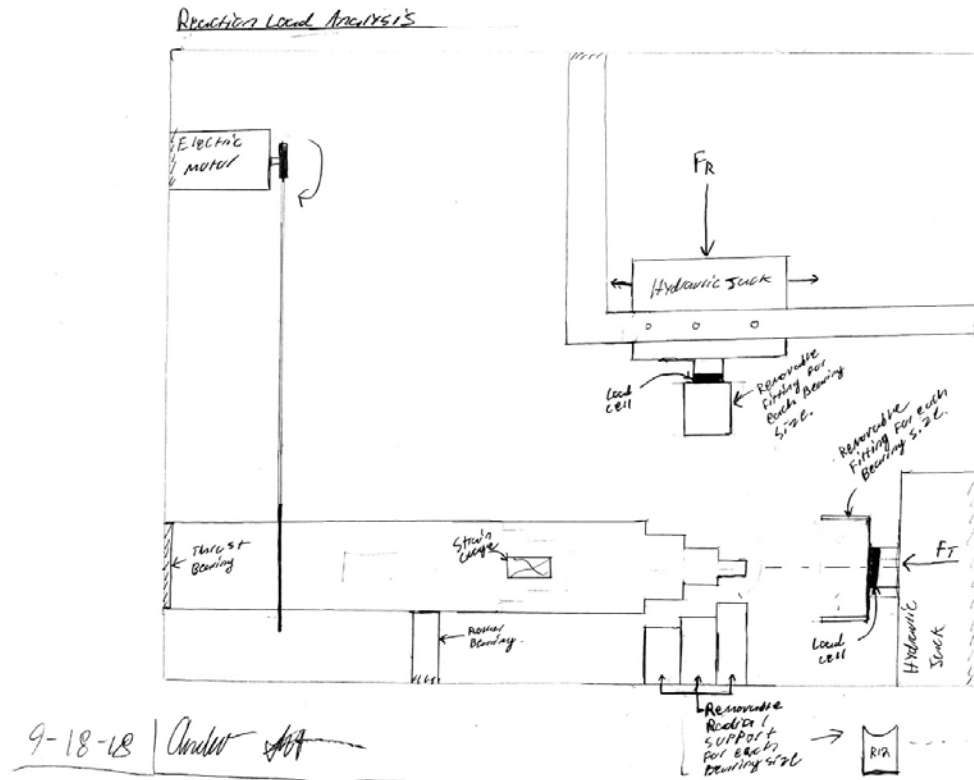 Reaction Load Analysis
Electric
Motor
FR
Hydraulic Jack
Load
cell
Removable
Fitting For
each Bearing
Size.
Removable
Fitting For each
Bearing Size.
Thrust
Bearing
Strain
Gauge
FT
Load
cell
Hydraulic
Jack
Roller
Bearing.
Removable
Radial
Support
For each
Bearing Size
9-18-18